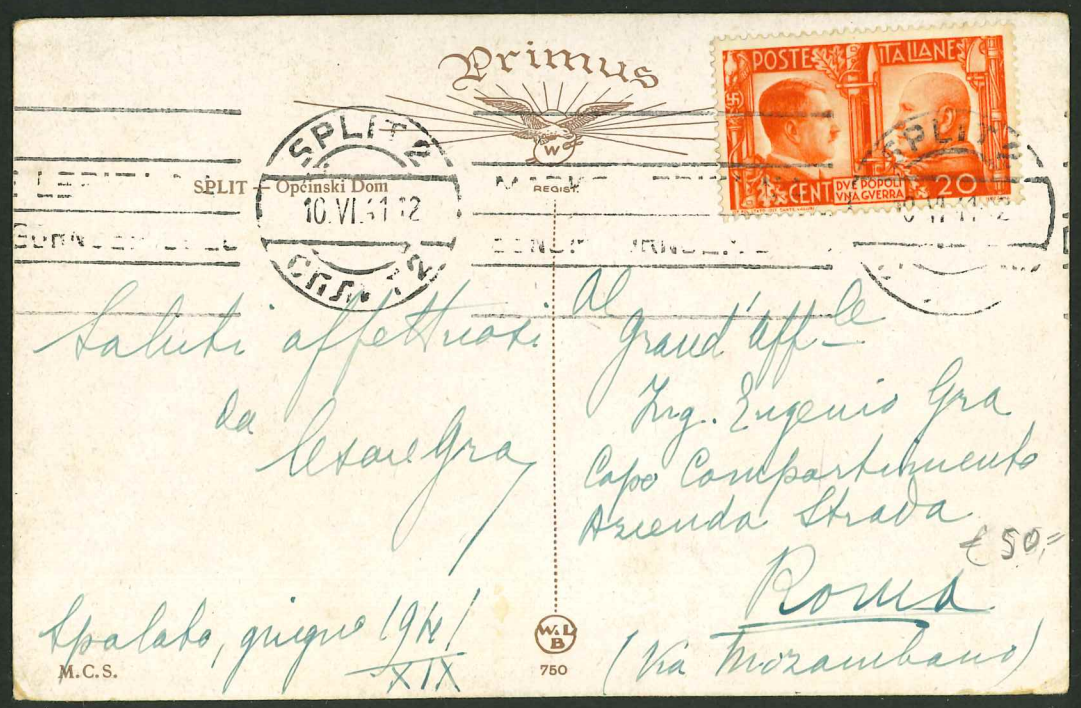 Primus
W
REGIST.
POSTE ITALIANE
CENT DVE POPOLI VNA GVERRA 20
SPLIT 2
10.VI.41.12
СПЛИТ 2
SPLIT 2
10.VI.41.12
SPLIT – Općinski Dom
Saluti affettuosi
da
Cesare Gra
Spalato, giugno 1941
XIX
M.C.S.
W.L
B
750
Al
Grand'Uff–le
Ing. Eugenio Gra
Capo Compartimento
Azienda Strada
Roma
(Via Mozambano)
€ 50,=